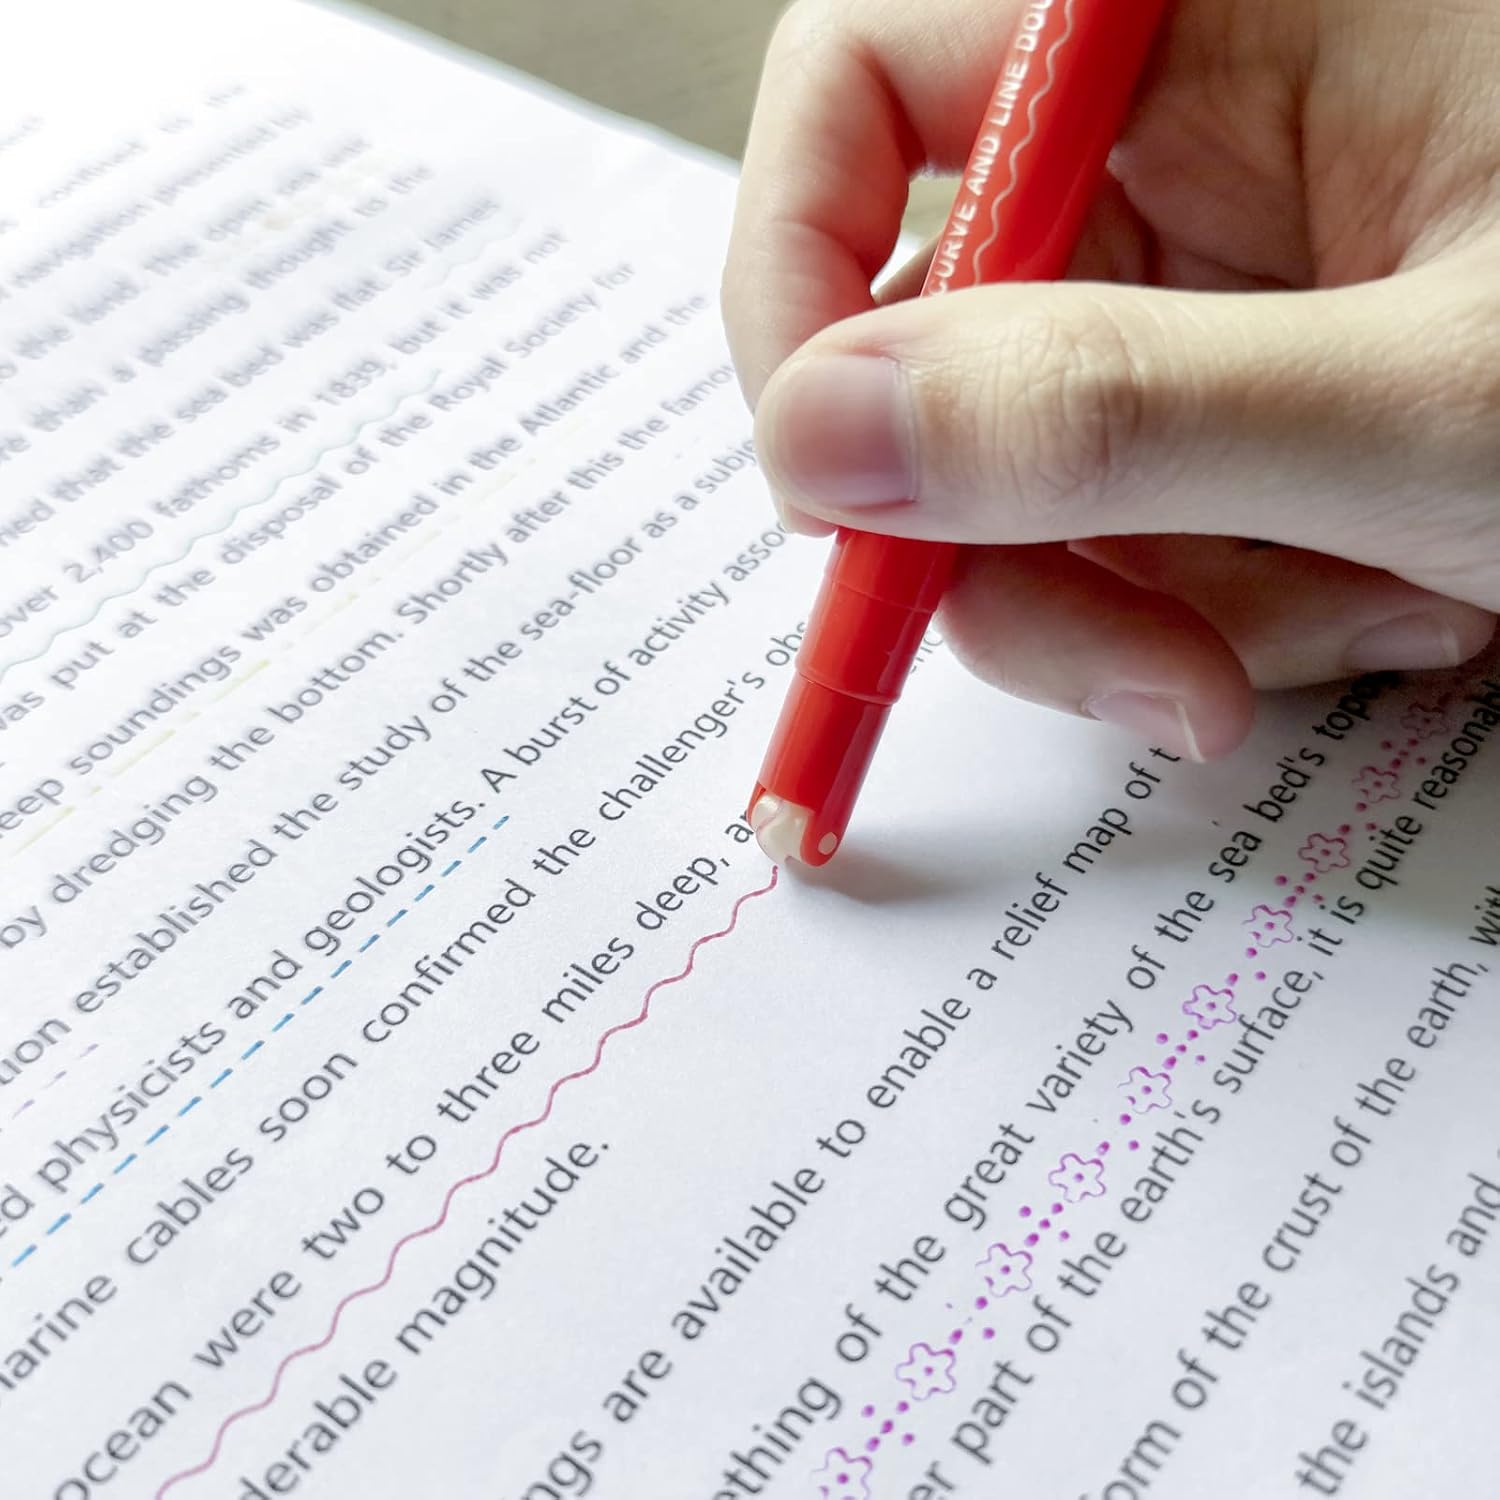 confined to the
navigation presented by
to the land. The open sea
than a passing thought to the
that the sea bed was flat. Sir James
over 2,400 fathoms in 1839, but it was not
was put at the disposal of the Royal Society for
deep soundings was obtained in the Atlantic and the
by dredging the bottom. Shortly after this the famou
established the study of the sea-floor as a subje
physicists and geologists. A burst of activity asso
cables soon confirmed the challenger's obs
ocean were two to three miles deep,
magnitude.
are available to enable a relief map of t
of the great variety of the sea bed's topo
part of the earth's surface, it is quite reasonabl
of the crust of the earth, with
the islands and
CURVE AND LINE DOU